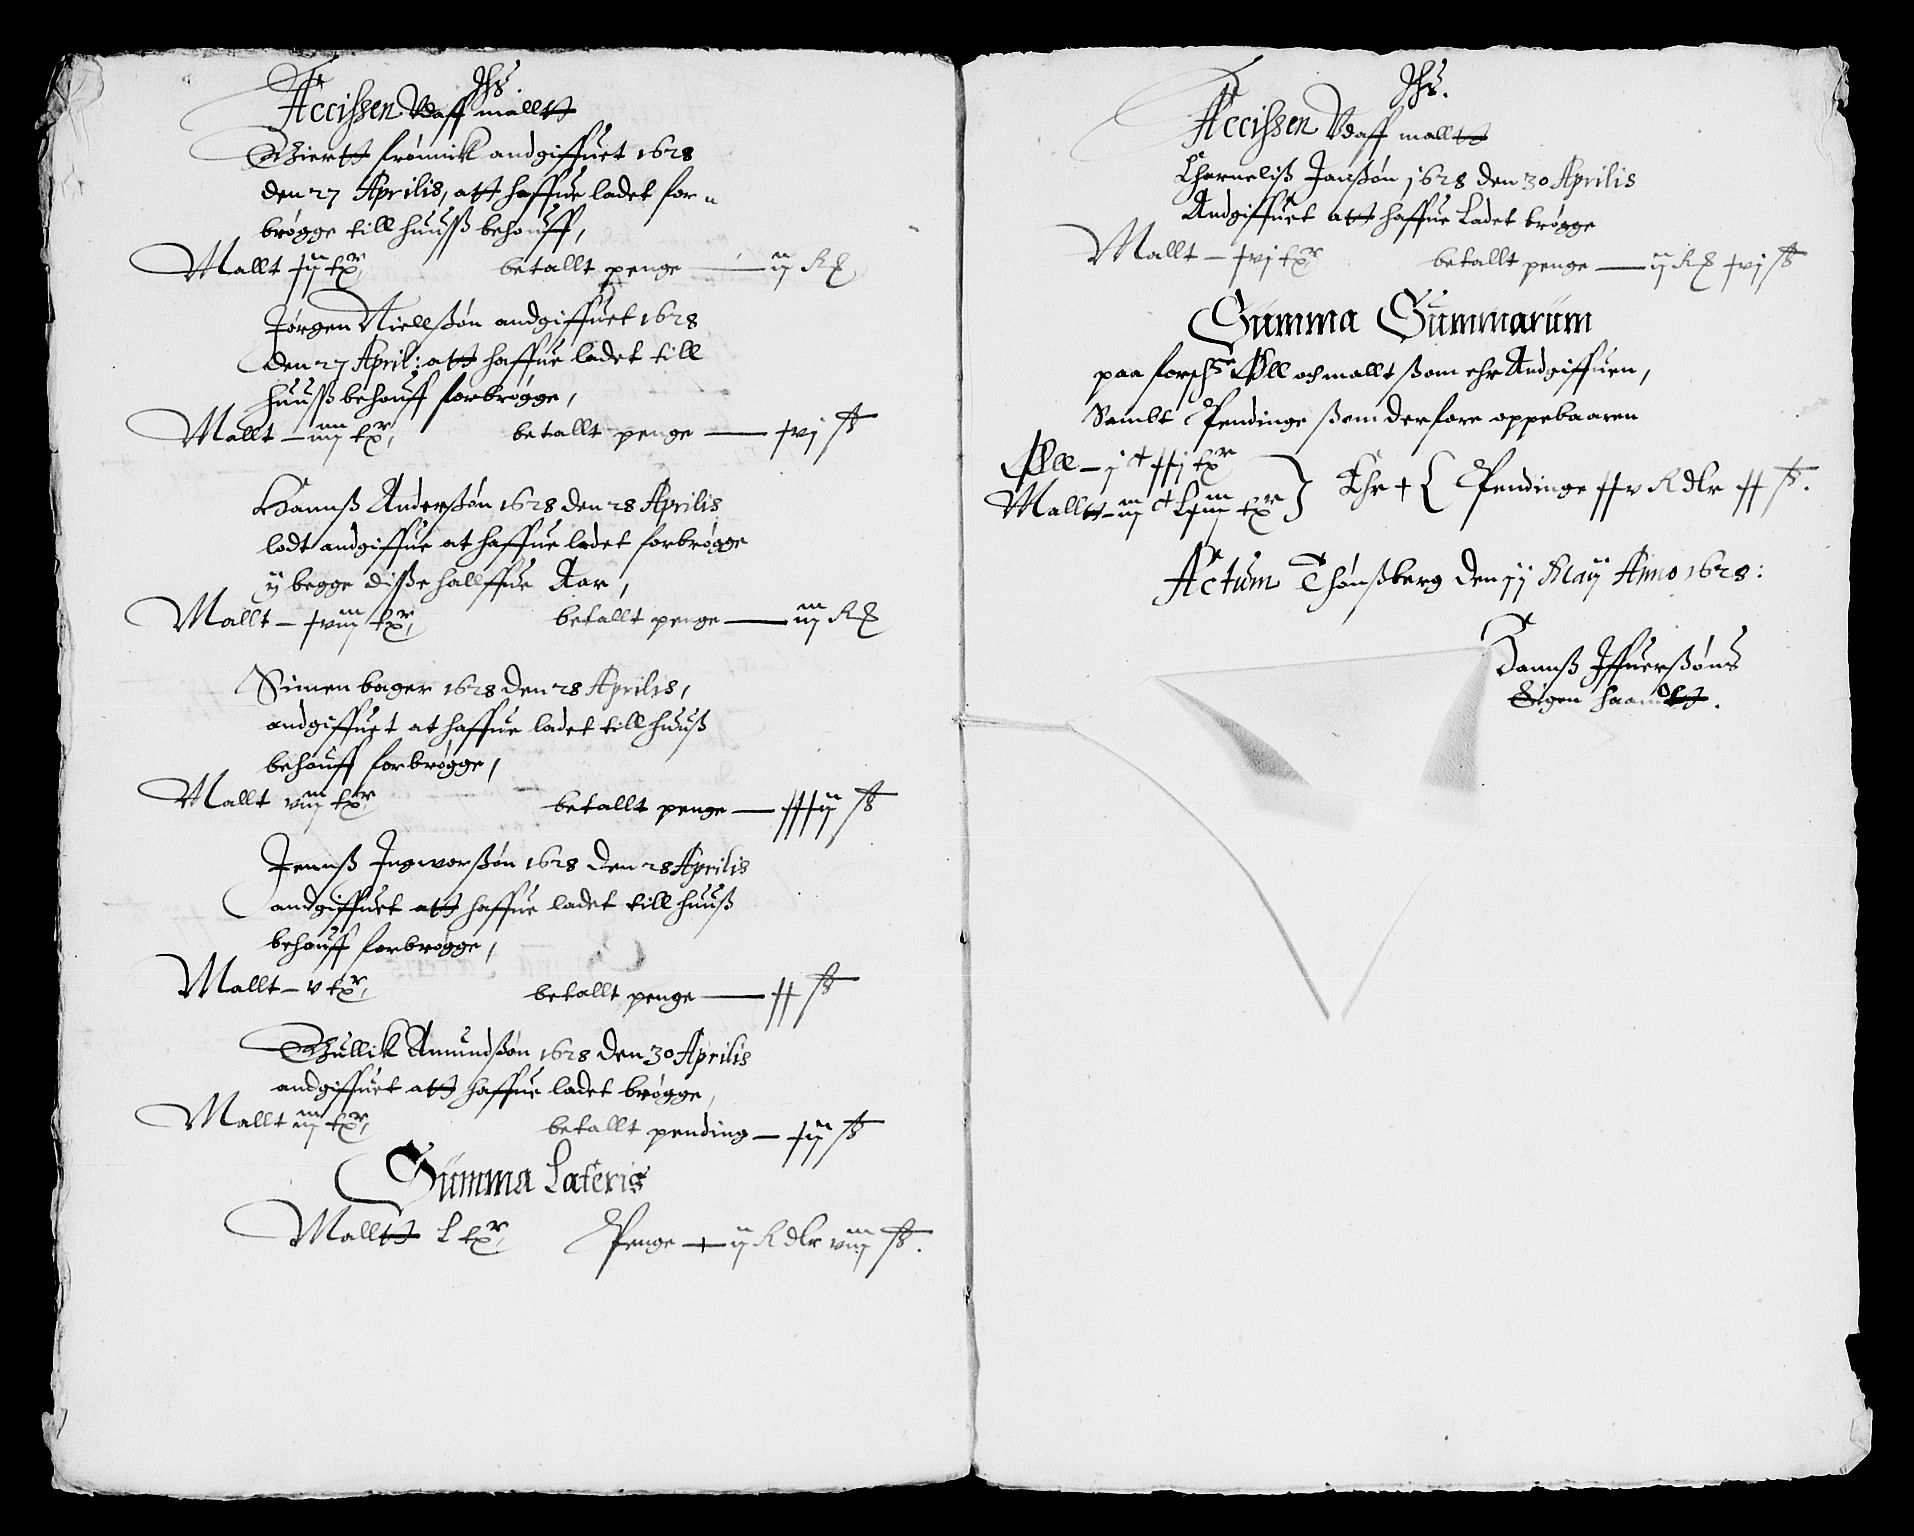 Jhs.
Accissen Vdaff malltt
Giertt frønnik andgiffuet 1628
den 27 Aprilis, att haffue ladet for„
brøgge till huuss behouff,
Mallt xij tꝛ, betallt penge — ij R
Jørgen Niellssøn andgiffuet 1628
den 27 April: att haffue ladet till
huuss behouff forbrøgge,
Mallt — iiij tꝛ, betallt penge — xvj ß
Hannss Anderssøn 1628 den 28 Aprilis
lodt andgiffue at haffue ladet forbrøgge
ij begge disse hallffue Aar,
Mallt — xviij tꝛ, betallt penge — iij R
Simen bager 1628 den 28 Aprilis,
andgiffuet at haffue ladet till huuss
behouff forbrøgge,
Mallt viij tꝛ betallt penge — xxxij ß
Jennss Jngworssøn 1628 den 28 Aprilis
andgiffuet att haffue ladet till huuss
behouff forbrøgge,
Mallt — v tꝛ, betallt penge — xx ß
Gullik Amundssøn 1628 den 30 Aprilis
andgiffuet att haffue ladet brøgge,
Mallt iij tꝛ, betallt pending — xij ß
Summa Lateris
Malltt L tꝛ, Penge — ij Rdlr viij ß.
Jhs.
Accissen Vdaff malltt
Charneliss Janssøn 1628 den 30 Aprilis
Andgiffuet att haffue Ladet brøgge
Mallt — xvj tꝛ betallt penge — ij R xvj ß
Summa Summarum
paa forsch: Øll och mallt ssom ehr Andgiffuen,
Sambt Pendinge ssom derfore oppebaaren
Øll — j c xxj tꝛ
Malltt — iij c Lxiij tꝛ } Ehr + { Pendinge xxv Rdlr xx ß.
Actum Thønssberg den 11 Maij Anno 1628:
Hannss Jffuerssøns
Eigen haandtt.